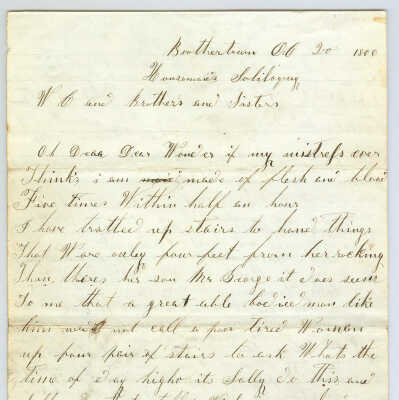 Boothertown Oct 20 1800
Housemaids Soliloquy
W C and Brothers and Sisters
Oh Deaa Dear Wonder if my mistress ever
Thinks i am made of flesh and blood
Five times Within half an hour
I have trotled up stairs to hand things
That Ware onley pour feet from her rocking
Than, theres her son Mr George it does seem
To me that a great able bodied man like
him not call a poor tired Woman
up pour pair of stairs to ask Whats the
time of day higho its Sally do this and